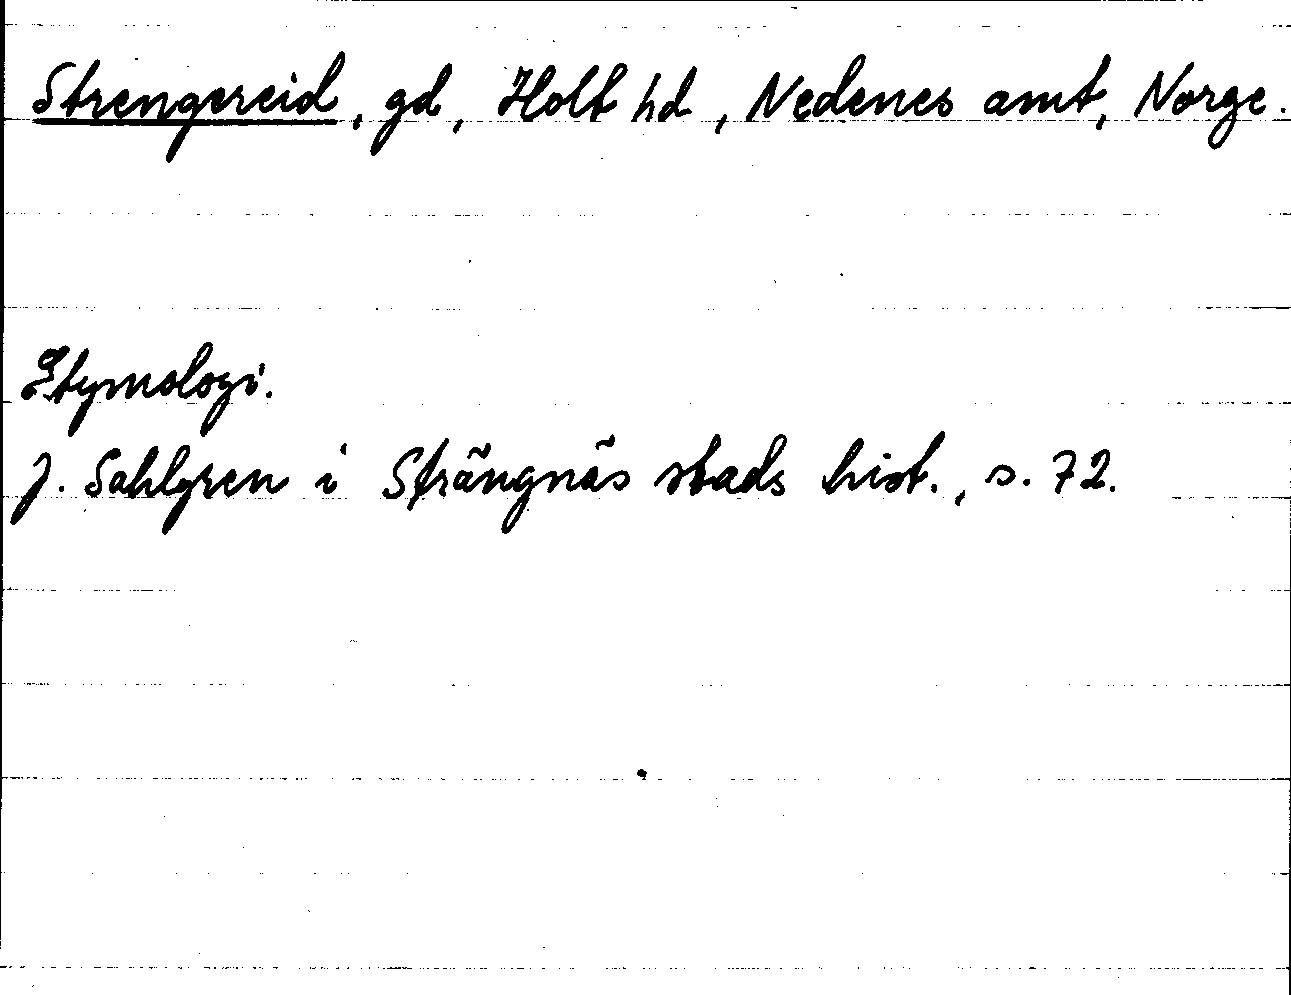 Strengereid, gd, Holt hd, Nedenes amt, Norge.
Etymologi.
J. Sahlgren i Strängnäs stads hist., s. 72.